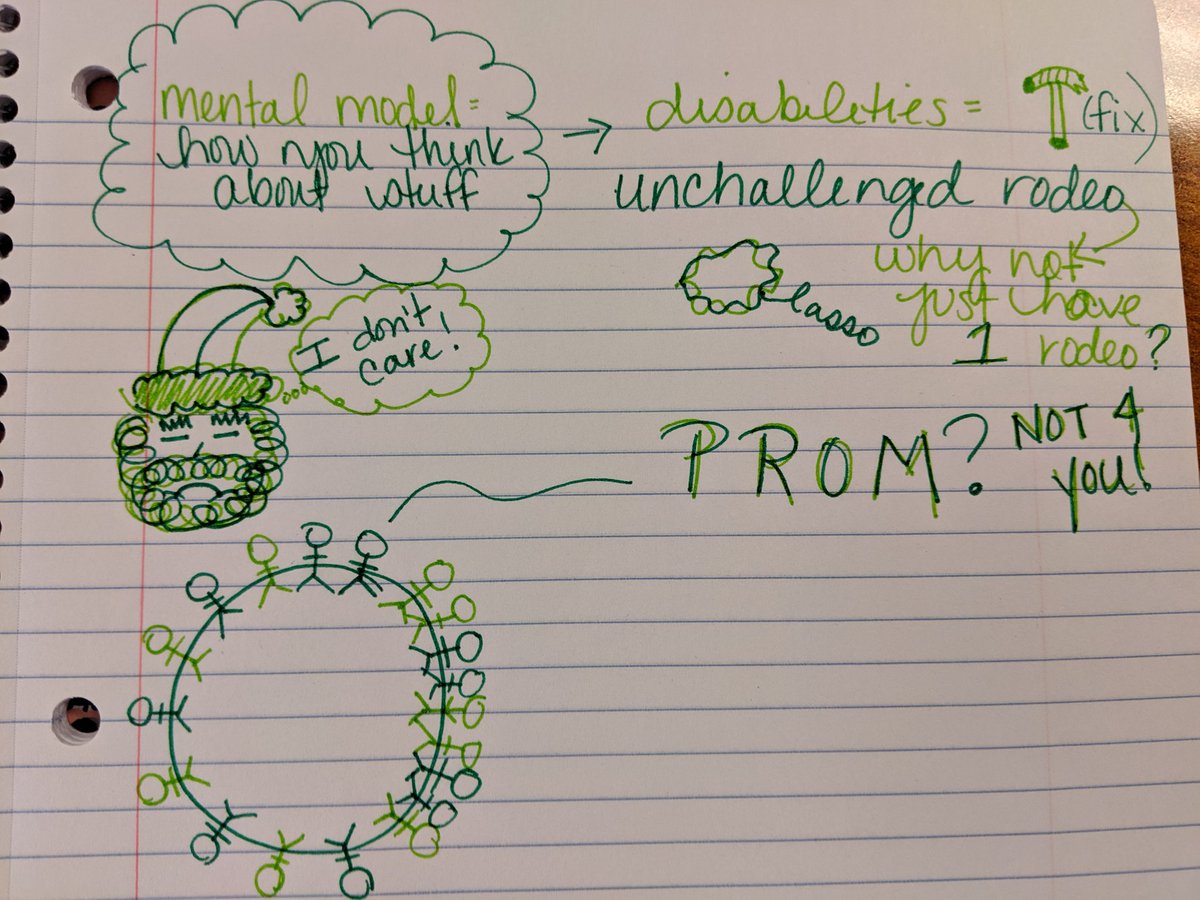 mental model =
how you think
about stuff
→ disabilities = (fix)
unchallenged rodeo
why not
just have
1 rodeo?
lasso
I don't
care!
PROM? NOT 4
you!